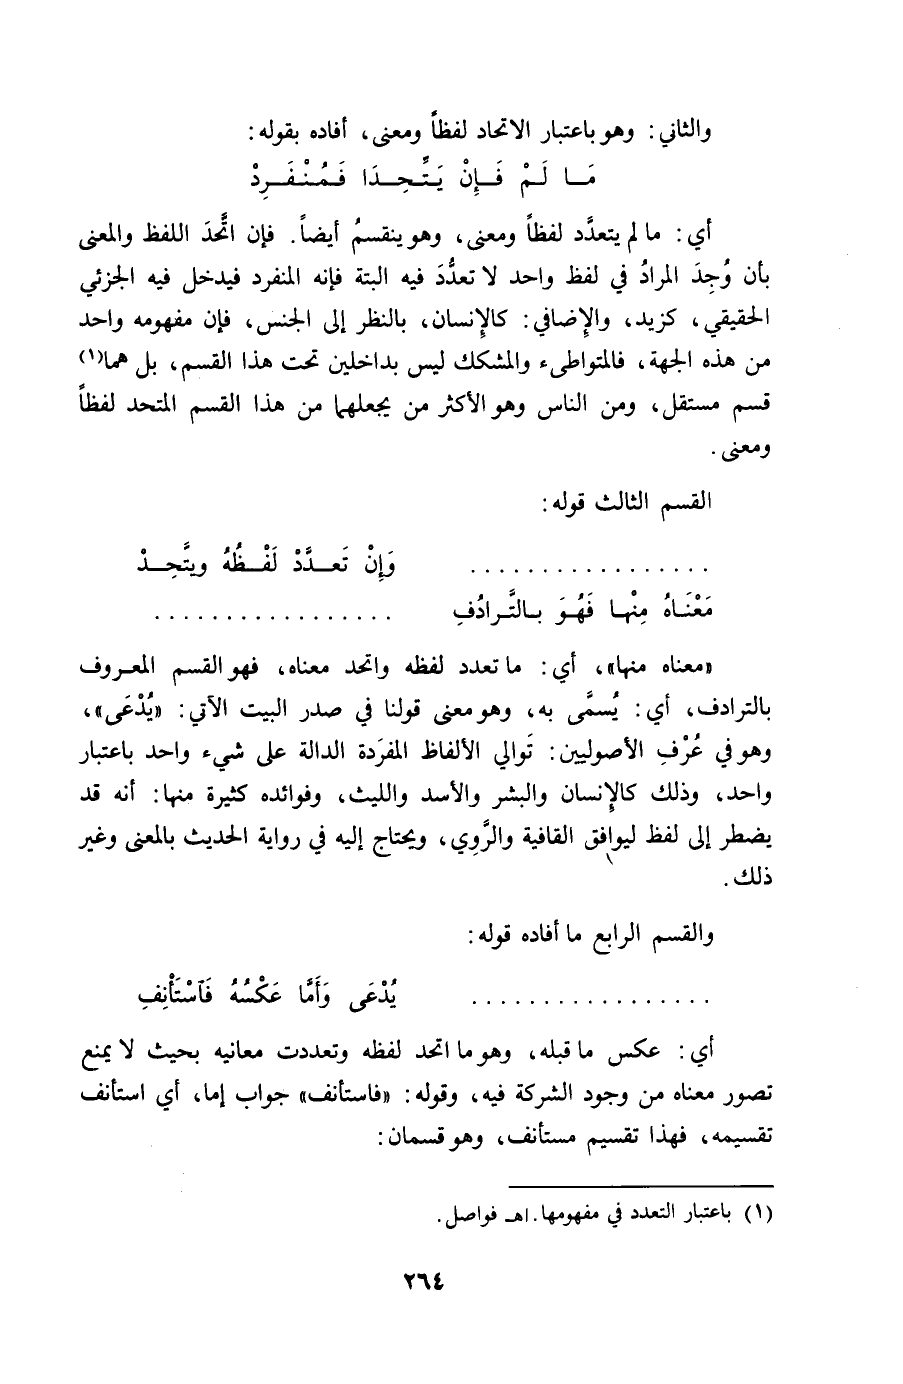 والثاني: وهو باعتبار الاتحاد لفظاً ومعنى، أفاده بقوله:
مَـا لَـمْ فَـإِنْ يَـتَّـحِـدَا فَـمُـنْـفَـرِدْ
أي: ما لم يتعدَّد لفظاً ومعنى، وهو ينقسمُ أيضاً. فإن اتَّحدَ اللفظ والمعنى
بأن وُجِدَ المرادُ في لفظ واحد لا تعدُّدَ فيه البتة فإنه المنفرد فيدخل فيه الجزئي
الحقيقي، كزيد، والإضافي: كالإنسان، بالنظر إلى الجنس، فإن مفهومه واحد
من هذه الجهة، فالمتواطىء والمشكك ليس بداخلين تحت هذا القسم، بل هما(١)
قسم مستقل، ومن الناس وهو الأكثر من يجعلهما من هذا القسم المتحد لفظاً
ومعنى.
القسم الثالث قوله:
................. وَإِنْ تَعَـدَّدْ لَفْـظُهُ ويتَّحِـدْ
مَعْنَاهُ مِنْهـا فَهُـوَ بـالتَّـرادُفِ .................
«معناه منها»، أي: ما تعدد لفظه واتحد معناه، فهو القسم المعروف
بالترادف، أي: يُسمَّى به، وهو معنى قولنا في صدر البيت الآتي: «يُدْعَى»،
وهو في عُرْفِ الأصوليين: تَوالي الألفاظ المفرَدة الدالة على شيء واحد باعتبار
واحد، وذلك كالإنسان والبشر والأسد والليث، وفوائده كثيرة منها: أنه قد
يضطر إلى لفظ ليوافق القافية والرَّوِي، ويحتاج إليه في رواية الحديث بالمعنى وغير
ذلك.
والقسم الرابع ما أفاده قوله:
................. يُدْعَى وَأَمَّا عَكْسُهُ فَآسْتَأْنِفِ
أي: عكس ما قبله، وهو ما اتحد لفظه وتعددت معانيه بحيث لا يمنع
تصور معناه من وجود الشركة فيه، وقوله: «فاستأنف» جواب إما، أي استأنف
تقسيمه، فهذا تقسيم مستأنف، وهو قسمان:
(١) باعتبار التعدد في مفهومها. اهـ فواصل.
٢٦٤